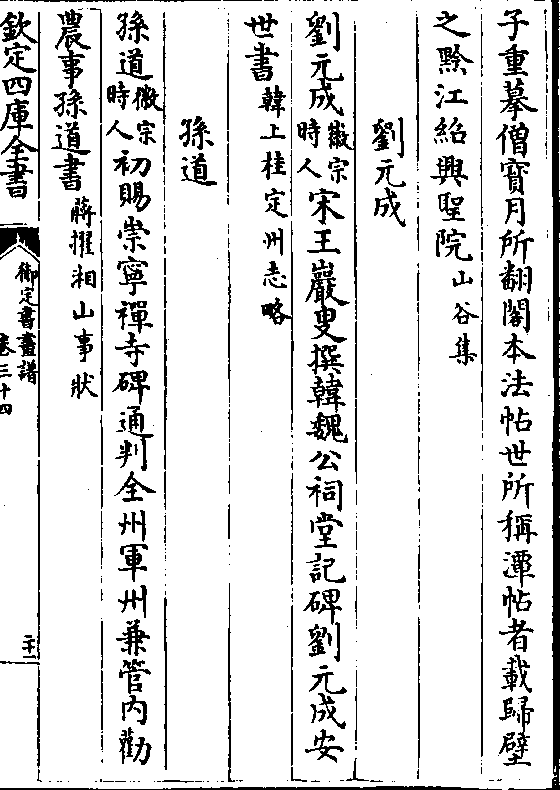 子重摹僧寶月所翻閣本法帖世所稱潭帖者載歸壁
之黔江紹興聖院山谷集
劉元成
劉元成徽宗時人宋王巖叟撰韓魏公祠堂記碑劉元成安
世書韓上桂定州志略
孫道
孫道徽宗時人初賜崇寧禪寺碑通判全州軍州兼管内勸
農事孫道書蔣擢湘山事狀
欽定四庫全書
御定書畫譜
卷三十四